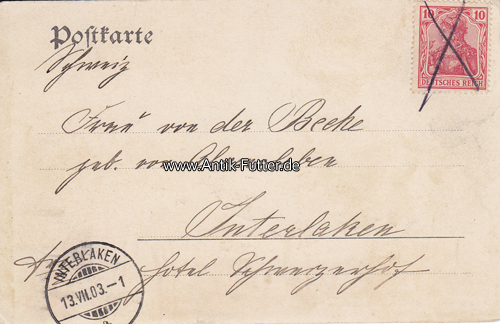 Postkarte
10 10
DEUTSCHES REICH
Schweiz
Frau von der Becke
geb. von
www.Antik-Fütter.de
Interlaken
Hotel Schweizerhof
INTERLAKEN
13.VII.03.-1